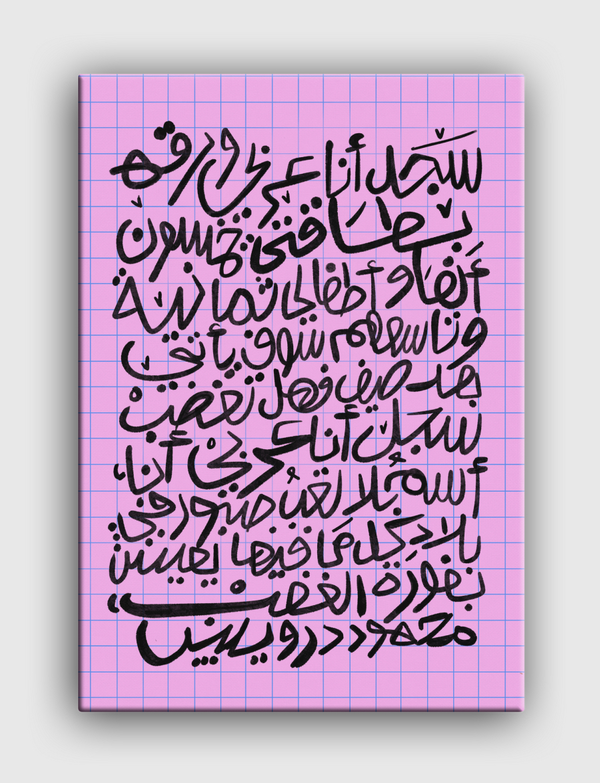 سَجّل أنا عربي ورقم
بطاقتي خمسون
ألفا وأطفالي ثمانية
وتاسعهم سوف يأتي
بعد صيف فهل تغضب
سجل أنا عربي أنا
أسم بلا لقب صبور في
بلاد كل ما فيها يعيش
بفورة الغضب
محمود درويش